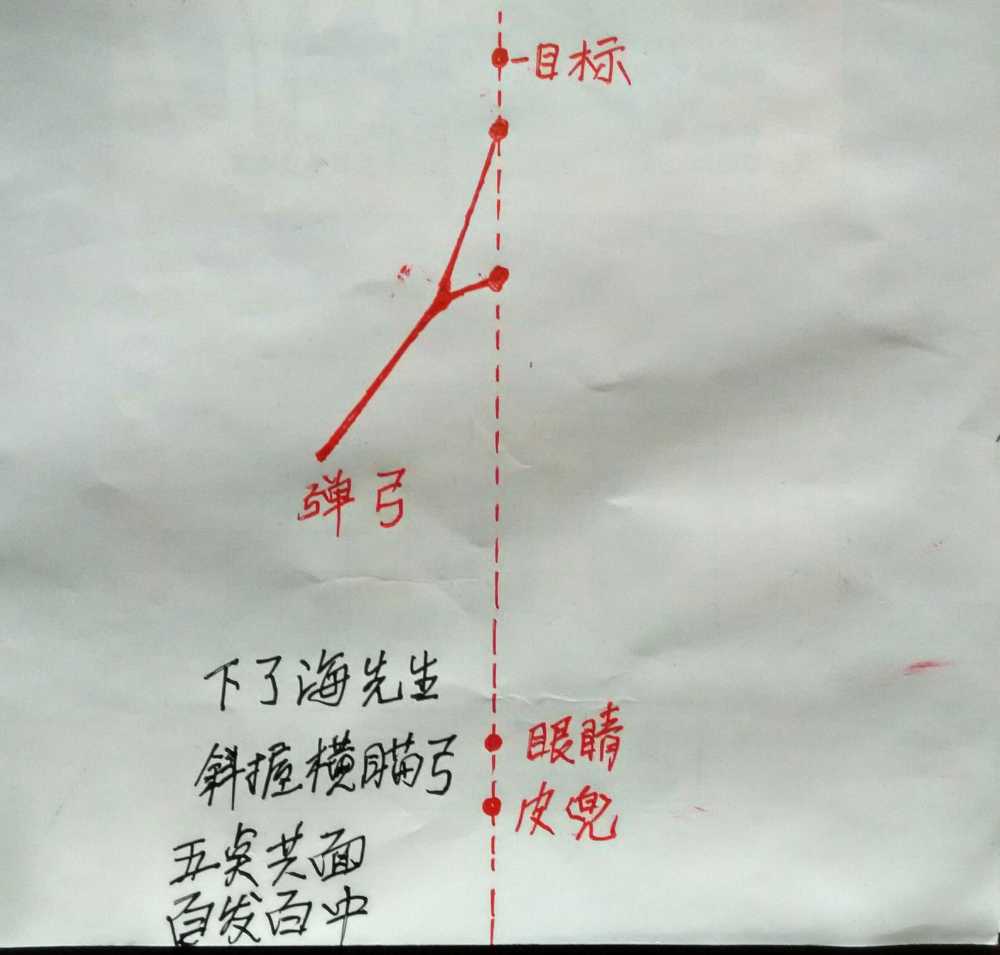 目标
弹弓
下了海先生
眼睛
斜握横瞄弓
皮兜
五点共面
百发百中